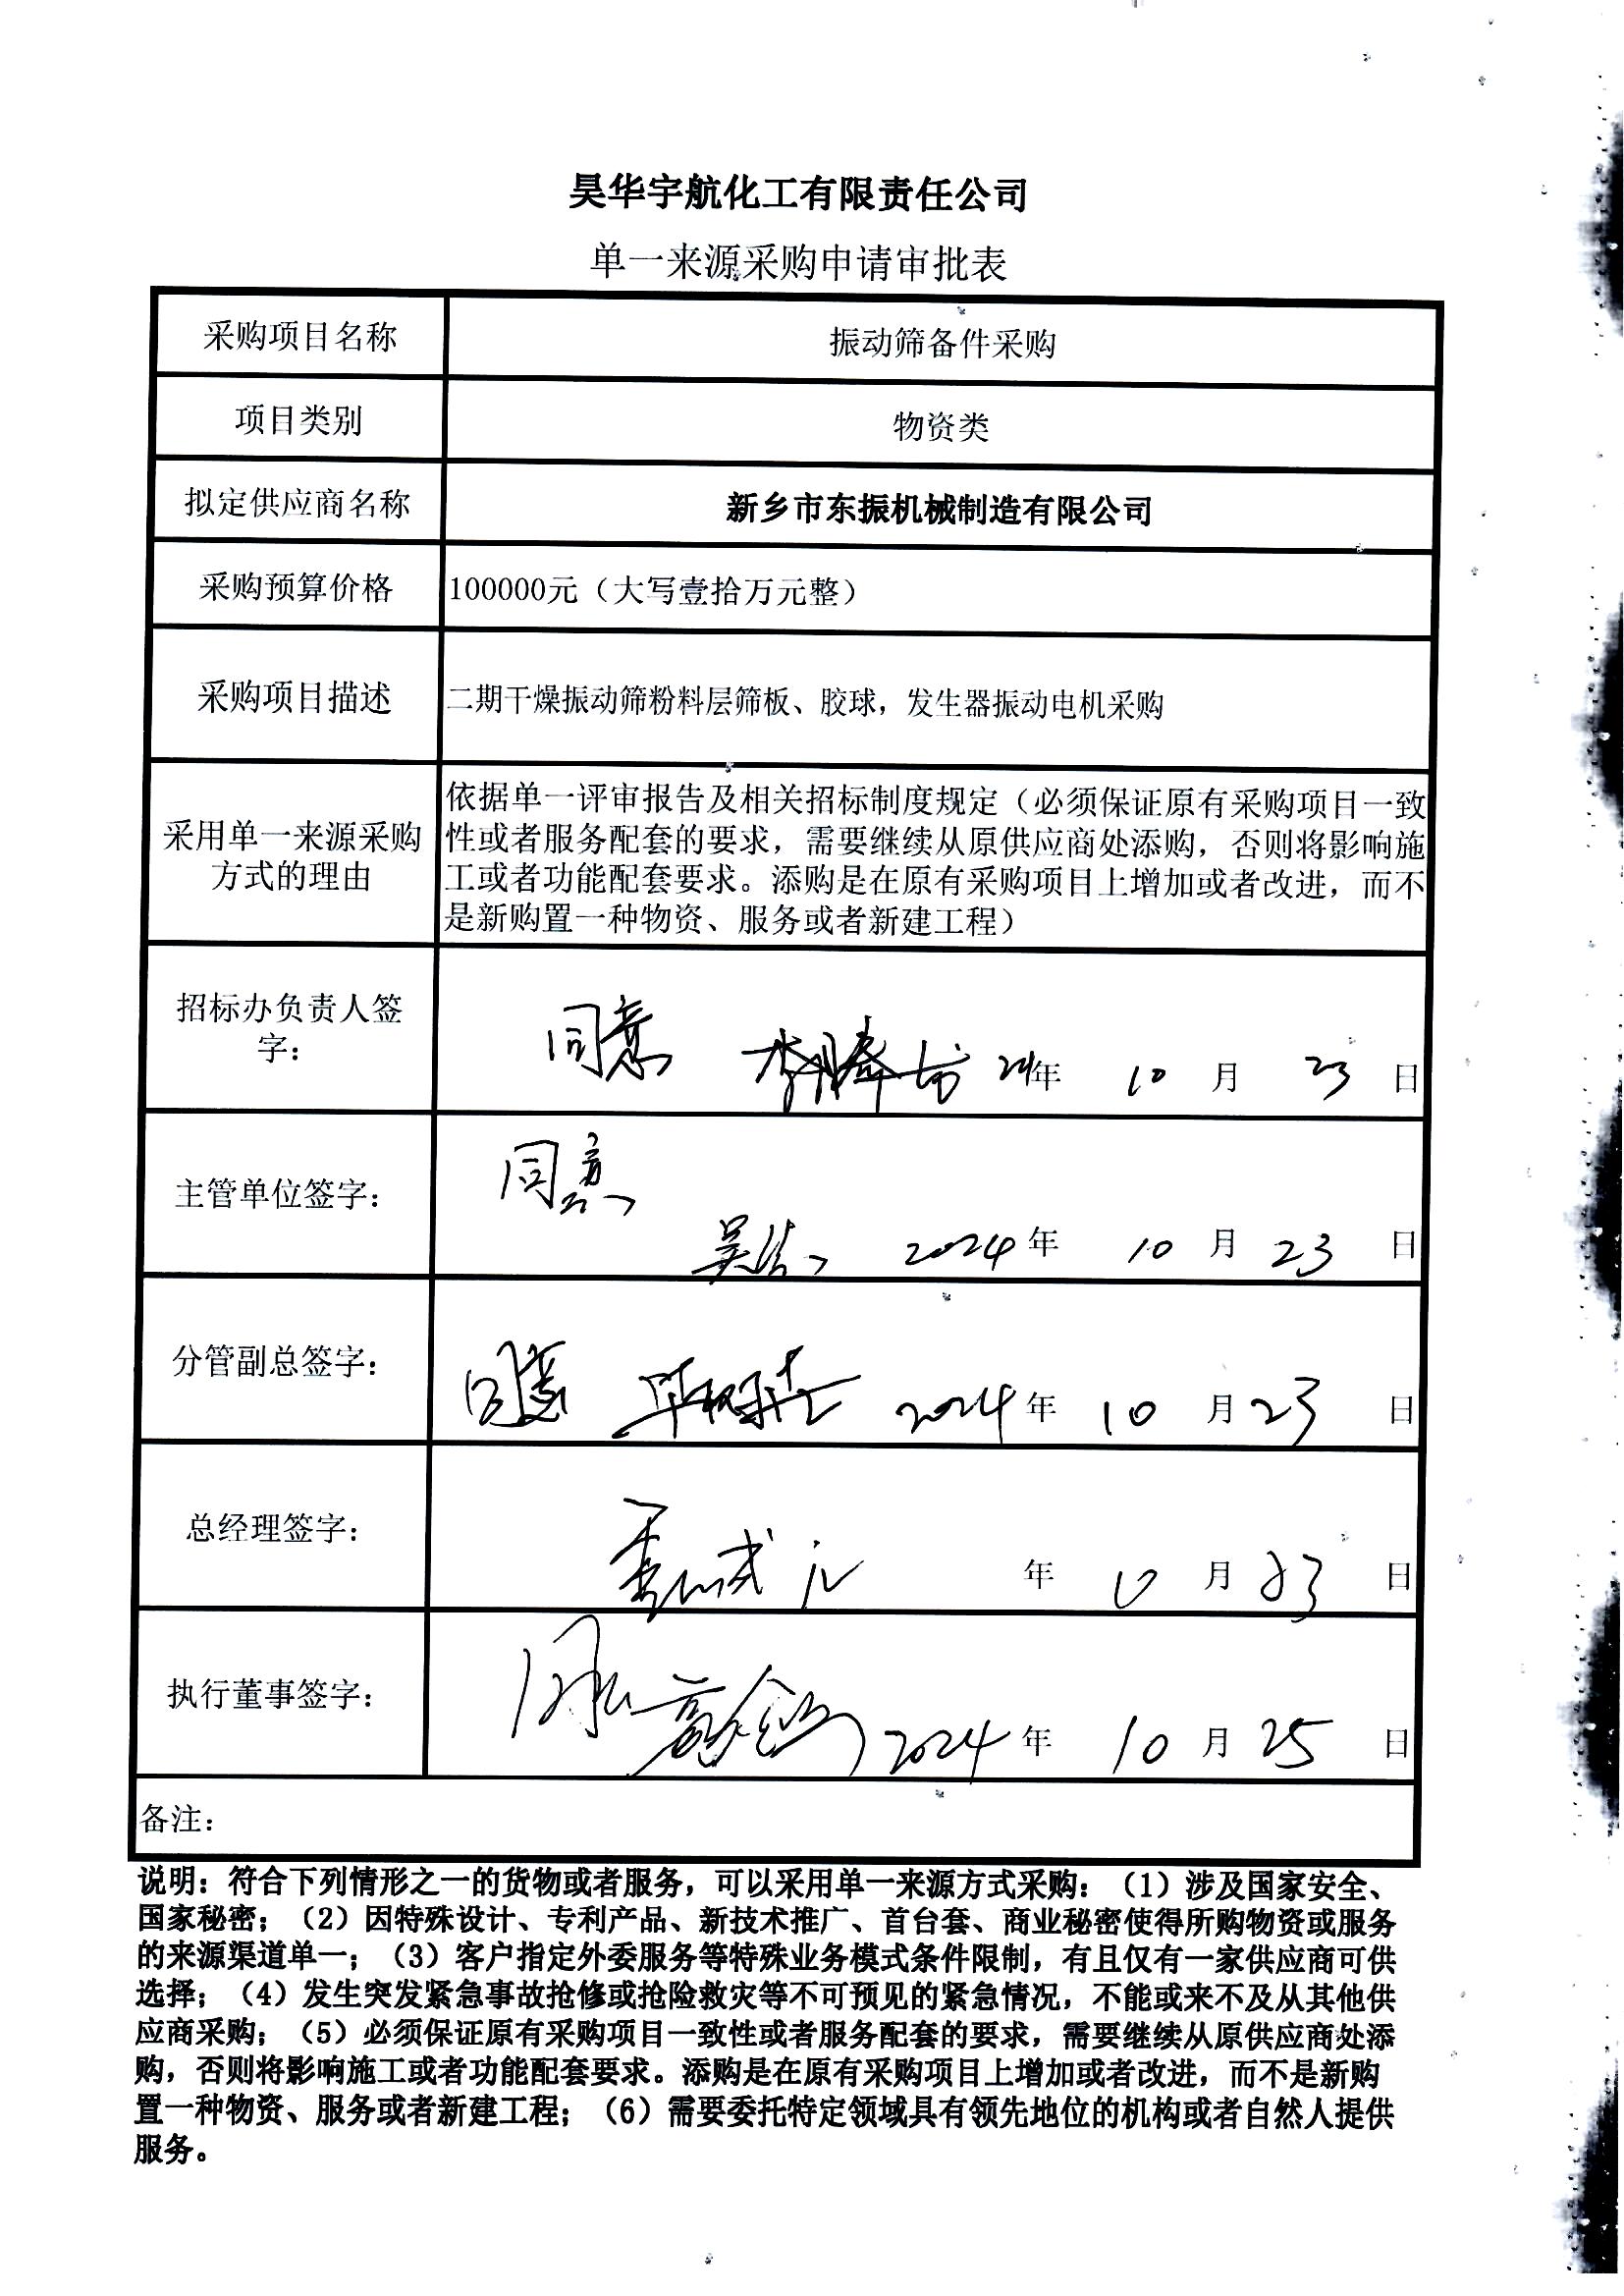 昊华宇航化工有限责任公司
单一来源采购申请审批表
采购项目名称
振动筛备件采购
项目类别
物资类
拟定供应商名称
新乡市东振机械制造有限公司
采购预算价格
100000元（大写壹拾万元整）
采购项目描述
二期干燥振动筛粉料层筛板、胶球，发生器振动电机采购
采用单一来源采购
方式的理由
依据单一评审报告及相关招标制度规定（必须保证原有采购项目一致
性或者服务配套的要求，需要继续从原供应商处添购，否则将影响施
工或者功能配套要求。添购是在原有采购项目上增加或者改进，而不
是新购置一种物资、服务或者新建工程）
招标办负责人签
字：
同意 24年 10 月 23 日
主管单位签字：
同意
2024 年 10 月 23 日
分管副总签字：
同意 2024 年 10 月 23 日
总经理签字：
年 10 月 23 日
执行董事签字：
2024 年 10 月 25 日
备注：
说明：符合下列情形之一的货物或者服务，可以采用单一来源方式采购：（1）涉及国家安全、
国家秘密；（2）因特殊设计、专利产品、新技术推广、首台套、商业秘密使得所购物资或服务
的来源渠道单一；（3）客户指定外委服务等特殊业务模式条件限制，有且仅有一家供应商可供
选择；（4）发生突发紧急事故抢修或抢险救灾等不可预见的紧急情况，不能或来不及从其他供
应商采购；（5）必须保证原有采购项目一致性或者服务配套的要求，需要继续从原供应商处添
购，否则将影响施工或者功能配套要求。添购是在原有采购项目上增加或者改进，而不是新购
置一种物资、服务或者新建工程；（6）需要委托特定领域具有领先地位的机构或者自然人提供
服务。